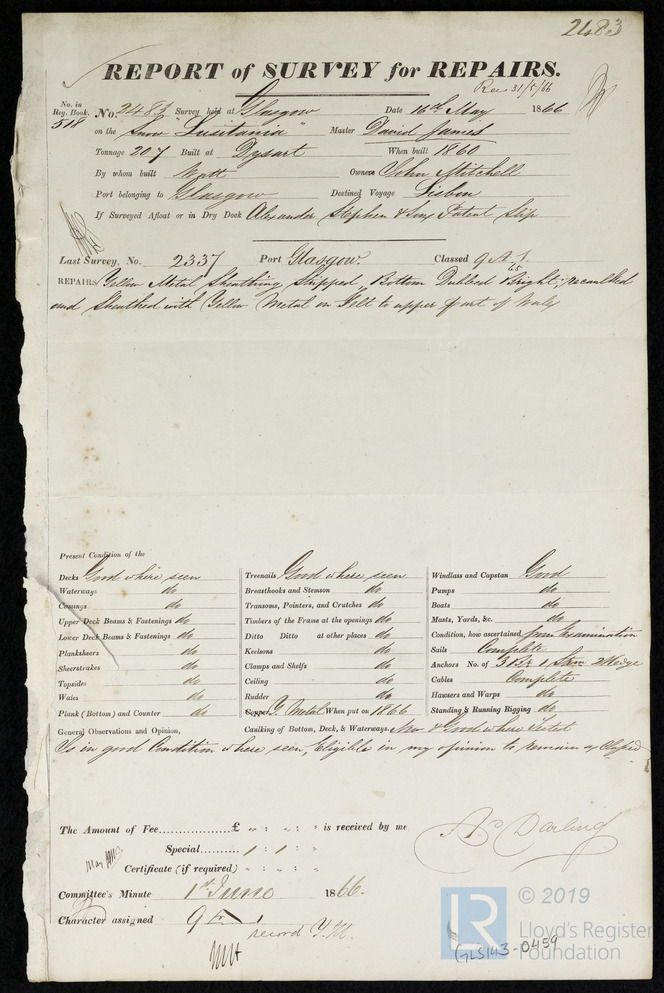 2483
REPORT of SURVEY for REPAIRS.
Rec 31/5/66
No. in Reg. Book. 518
No. 2483 Survey held at Glasgow Date 16th May 1866
on the Snow "Lusitania" Master David James
Tonnage 207 Built at Dysart When built 1860
By whom built Owners John Mitchell
Port belonging to Glasgow Destined Voyage Lisbon
If Surveyed Afloat or in Dry Dock Alexander Stephen & Sons Patent Slip
Last Survey, No. 2337 Port Glasgow Classed 9 A.1.
REPAIRS Yellow Metal Sheathing Stripped, Bottom Dubbed Bright, recaulked
and Sheathed with Yellow Metal on Felt to upper part of Wales
Present Condition of the
Decks Good where seen
Waterways do
Comings do
Upper Deck Beams & Fastenings do
Lower Deck Beams & Fastenings do
Planksheers do
Sheerstrakes do
Topsides do
Wales do
Plank (Bottom) and Counter do
Treenails Good where seen
Breasthooks and Stemson do
Transoms, Pointers, and Crutches do
Timbers of the Frame at the openings do
Ditto Ditto at other places do
Keelsons do
Clamps and Shelfs do
Ceiling do
Rudder do
Copper Y. Metal When put on 1866
Windlass and Capstan Good
Pumps do
Boats do
Masts, Yards, &c. do
Condition, how ascertained from Examination
Sails Complete
Anchors No. of 3 Br 1 Strm 2 Kedge
Cables Complete
Hawsers and Warps do
Standing & Running Rigging do
General Observations and Opinion, Caulking of Bottom, Deck, & Waterways. New & Good where Tested
Is in good Condition where seen, Eligible in my opinion to remain as Classed
The Amount of Fee £ " : " : " is received by me
Special 1 : 1 :
Certificate (if required) " : " : "
A. Darling
Committee's Minute 1st June 1866.
Character assigned 9 1
record Y.M.
LR
© 2019
Lloyd's Register
Foundation
GLS143-0459